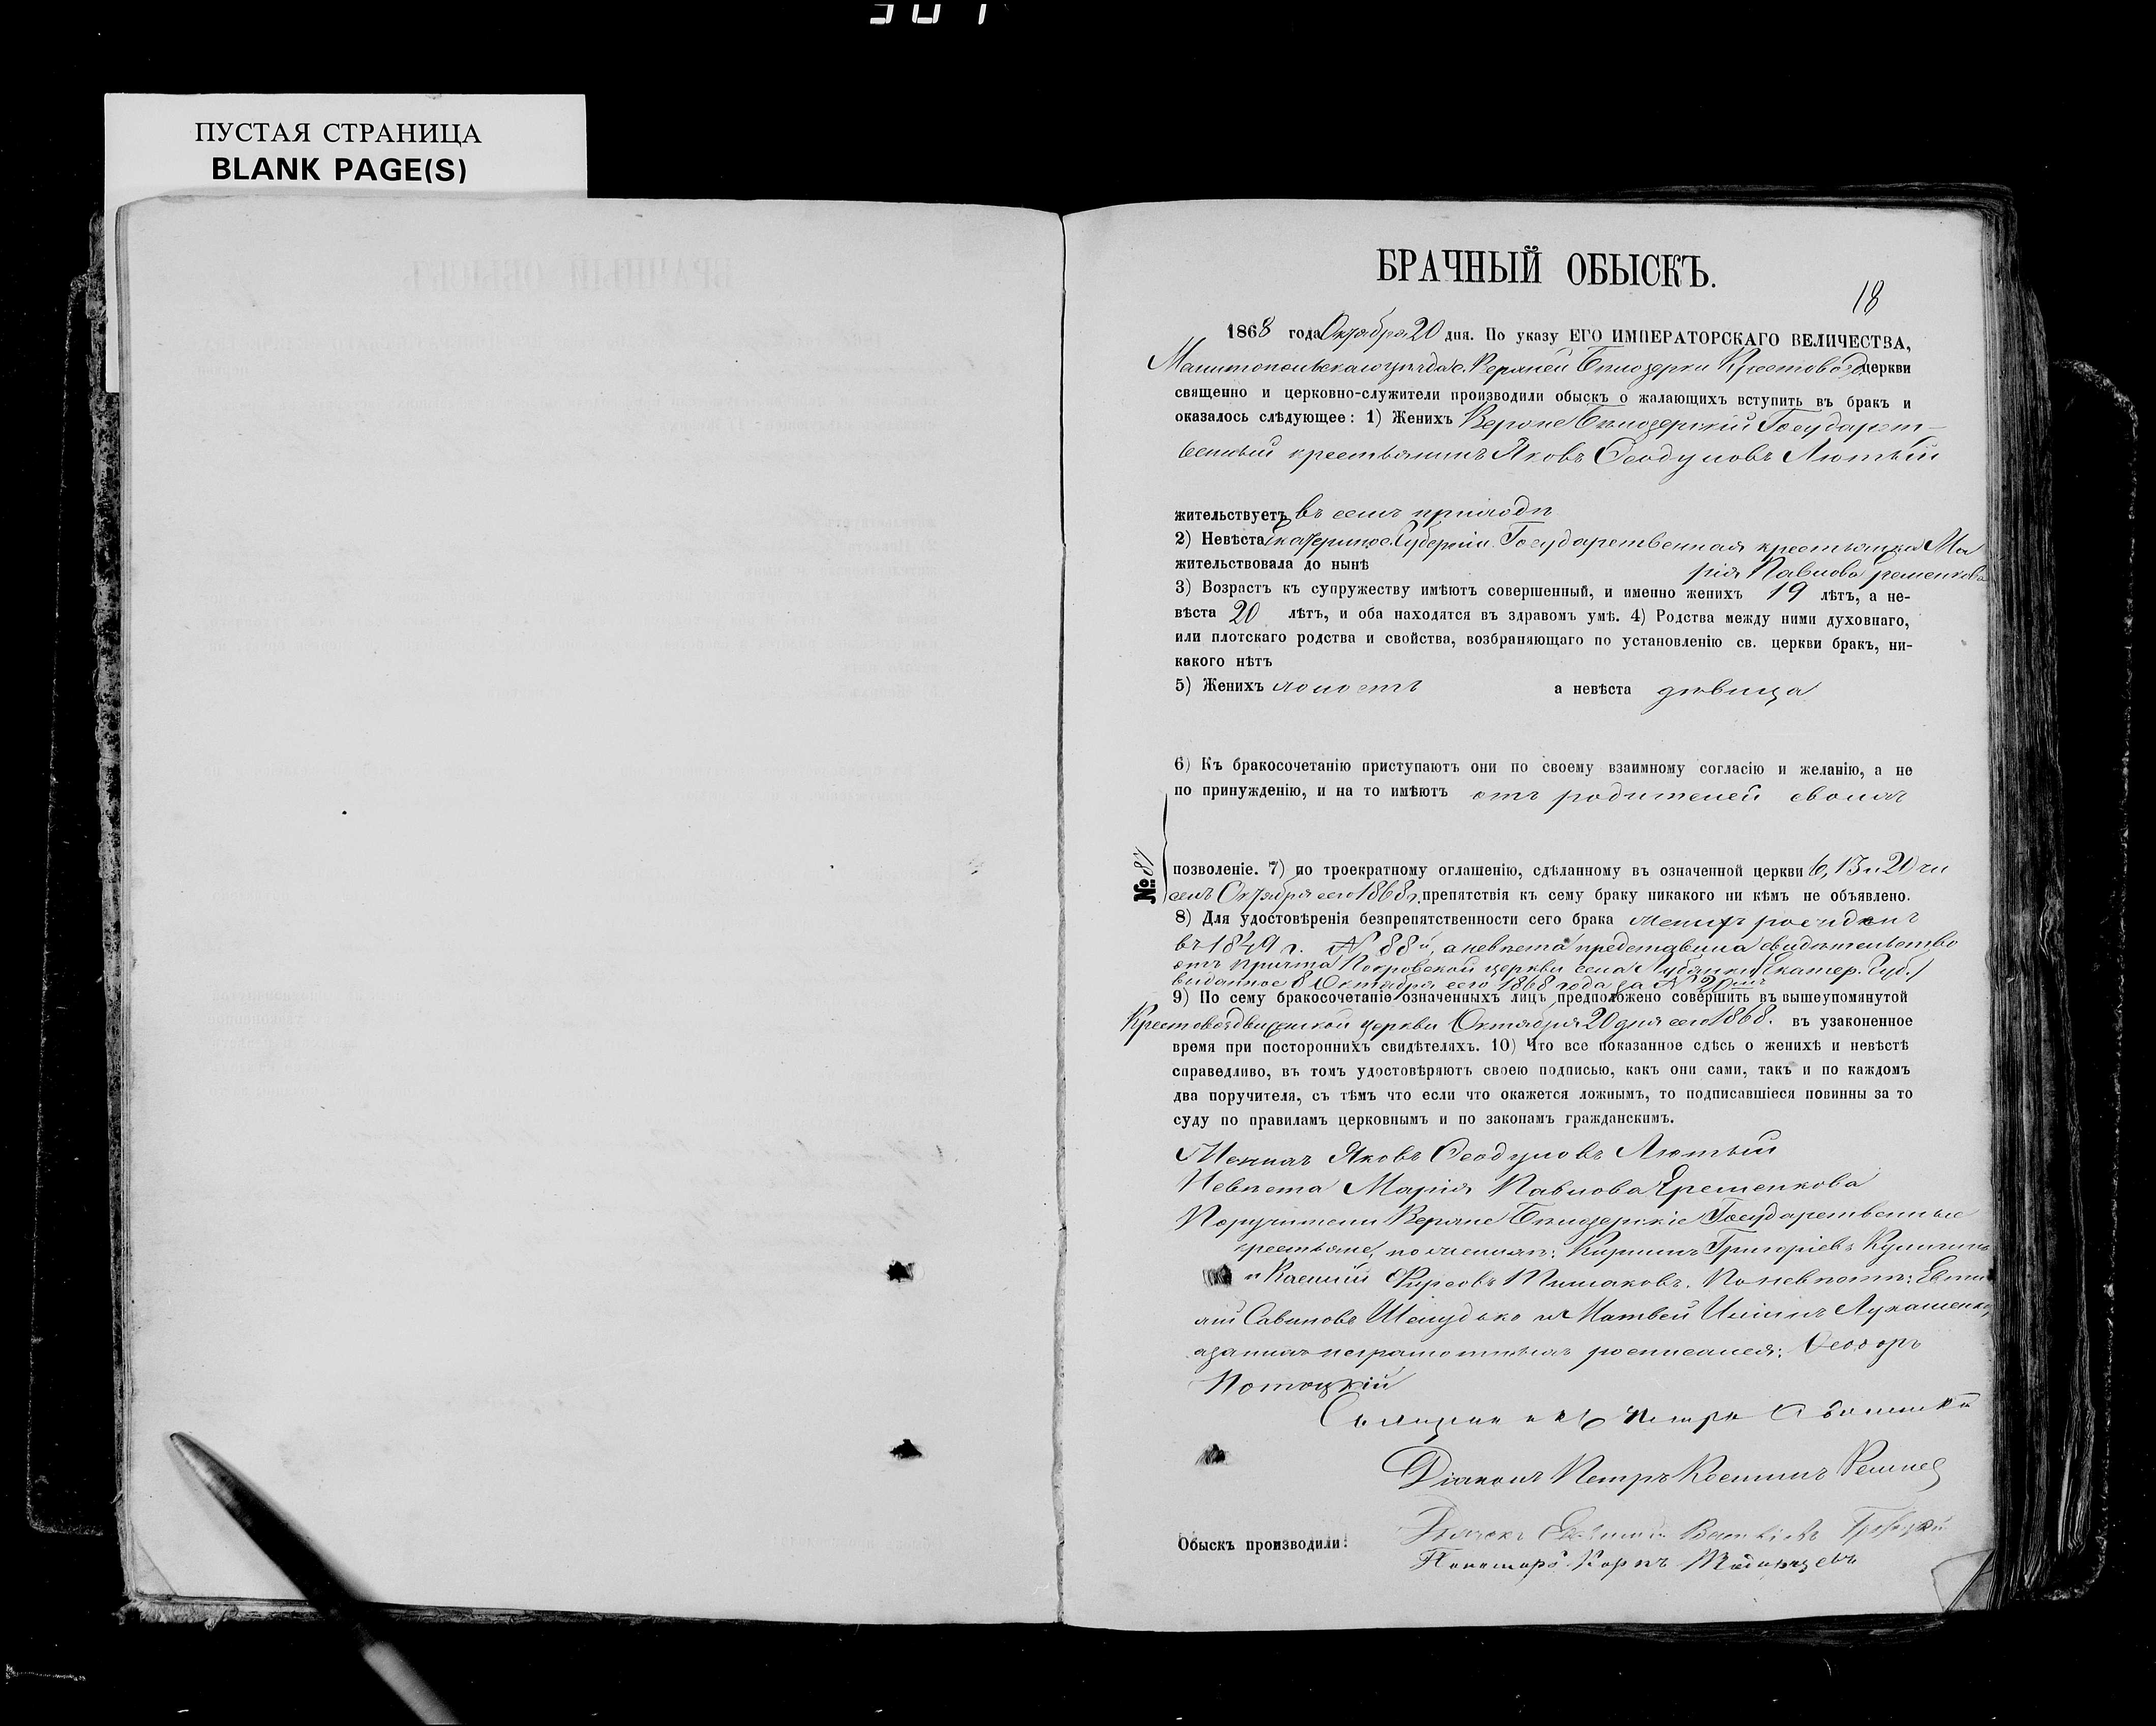 ПУСТАЯ СТРАНИЦА
BLANK PAGE(S)
БРАЧНЫЙ ОБЫСКЪ.
18
1868 года Октября 20 дня. По указу ЕГО ИМПЕРАТОРСКАГО ВЕЛИЧЕСТВА,
Мелитопольскаго уѣзда с. Верхней Бѣлозерки Крестовозд. церкви
священно и церковно-служители производили обыскъ о жалающихъ вступить въ бракъ и
оказалось слѣдующее: 1) Женихъ Верхне Бѣлозерскій Государст-
венный крестьянинъ Яковъ Ѳеодуловъ Лютый
жительствуетъ въ семъ приходѣ
2) Невѣста Екатеринос. Губерніи Государственная крестьянка Ма
жительствовала до нынѣ рія Павлова Еременкова
3) Возрастъ къ супружеству имѣютъ совершенный, и именно женихъ 19 лѣтъ, а не-
вѣста 20 лѣтъ, и оба находятся въ здравомъ умѣ. 4) Родства между ними духовнаго,
или плотскаго родства и свойства, возбраняющаго по установленію св. церкви бракъ, ни-
какого нѣтъ
5) Женихъ холостъ а невѣста дѣвица
6) Къ бракосочетанію приступаютъ они по своему взаимному согласію и желанію, а не
по принужденію, и на то имѣютъ отъ родителей своихъ
№ 87
позволеніе. 7) по троекратному оглашенію, сдѣланному въ означенной церкви 6, 13 и 20 чи
селъ Октября сего 1868 г. препятствія къ сему браку никакого ни кѣмъ не объявлено.
8) Для удостовѣренія безпрепятственности сего брака женихъ рожденъ
въ 1849 г. № 88й, а невѣста представила свидѣтельство
отъ причта Покровской церкви села Лубянки (Екатер. Губ.)
выданное 8 Октября сего 1868 года за № 20мъ
9) По сему бракосочетаніе означенныхъ лицъ предположено совершить въ вышеупомянутой
Крестовоздвиженской церкви Октября 20 дня сего 1868. въ узаконенное
время при постороннихъ свидѣтеляхъ. 10) Что все показанное сдѣсь о женихѣ и невѣстѣ
справедливо, въ томъ удостовѣряютъ своею подписью, какъ они сами, такъ и по каждомъ
два поручителя, съ тѣмъ что если что окажется ложнымъ, то подписавшіеся повинны за то
суду по правиламъ церковнымъ и по законамъ гражданскимъ.
Женихъ Яковъ Ѳеодуловъ Лютый
Невѣста Марія Павлова Еременкова
Поручители Верхне Бѣлозерскіе Государственные
крестьяне, по женихѣ: Кириллъ Григоріевъ
и Василій Фирсовъ. По невѣстѣ:
Савиновъ Шелудько и Матвей Ильинъ Лукашенко,
а за нихъ неграмотныхъ росписался: Ѳеодоръ
Потоцкій
Священникъ Петръ
Діаконъ Петръ Костинъ
Дьячокъ
Обыскъ производили:
Пономарь Карпъ